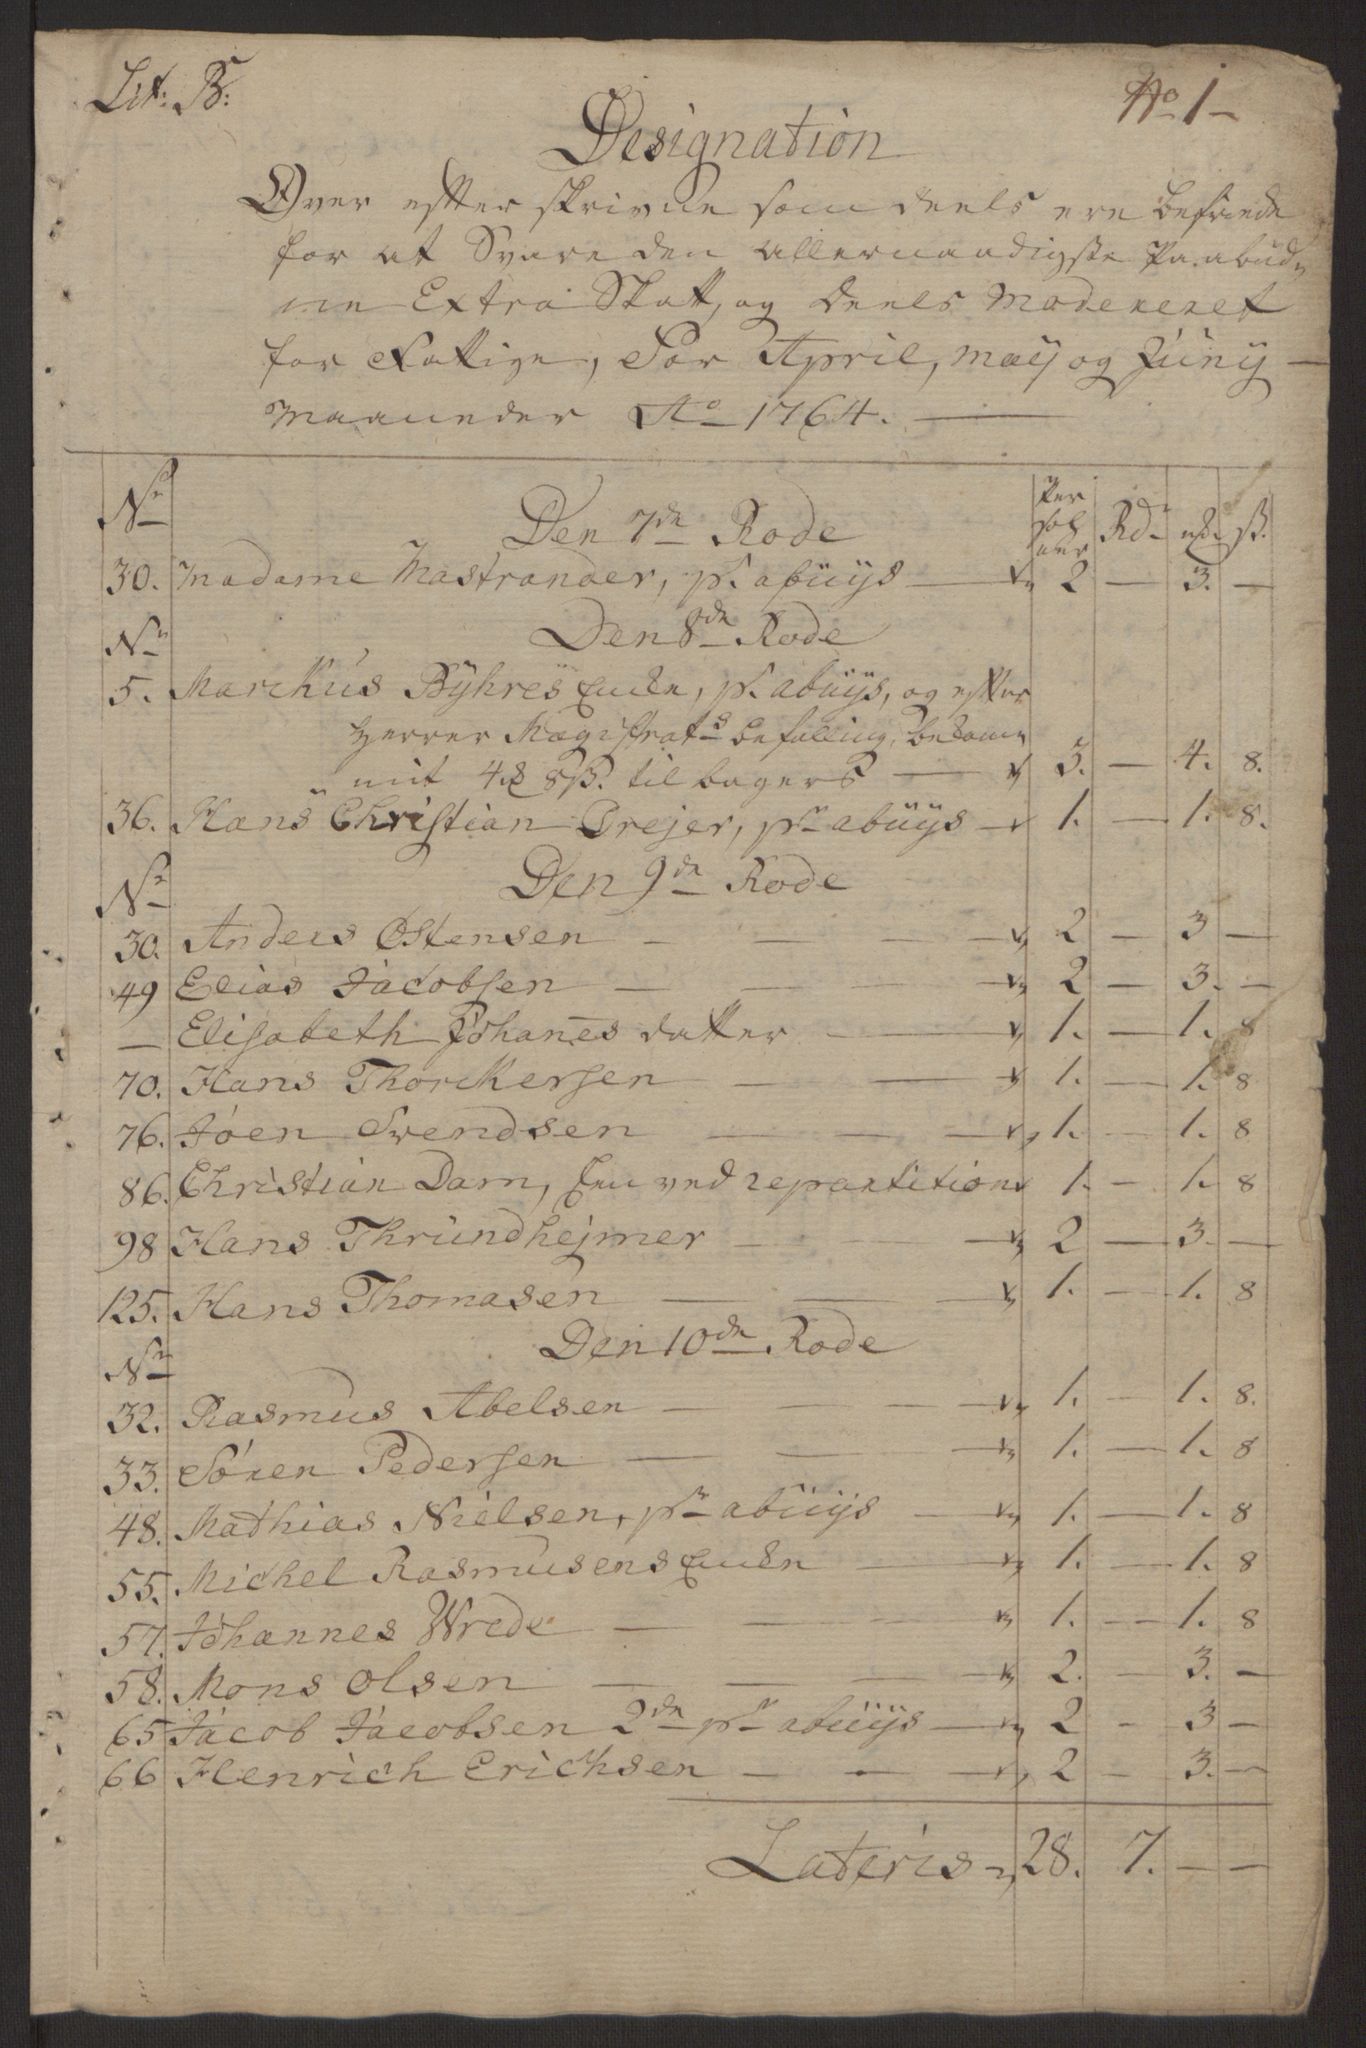 Lit: B:
No 1
Designation
Over efter skrivne som deels ere befriede
for at Svare den allernaadigste Paabud,
ne Extra Skatt, og deels Modereret
for Fattige, For April, Maÿ og Junÿ
Maaneder Ao 1764.
Nr Den 7de Rode Per soh ner Rd. mk. ß.
30. Madame Mastrander, pr. abüÿs 2 — 3. —
Nr Den 8de Rode
5. Marckus Bÿhres Encke, pr. abüÿs, og efter
Herrer Magistrats befalling, bekom
mit 4 mk 8 ß. til bagers 3. — 4. 8.
36. Hans Christian Drejer, pr abüÿs 1. — 1. 8.
Nr Den 9de Rode
30. Anders Ostensen 2 — 3 —
49 Elias Jacobsen 2 — 3. —
— Elisabeth Johanes datter 1. — 1. 8
70. Hans Thorckersen 1. — 1. 8
76. Joen Svendsen 1. — 1. 8
86. Christian Dam, Een ved repartition 1. — 1. 8
98 Hans Thrundhejmer 2 — 3. —
125. Hans Thomasen 1. — 1. 8
Nr Den 10de Rode
32. Rasmus Abelsen 1. — 1. 8.
33. Sören Pedersen 1. — 1. 8
48. Mathias Nielsen, pr abüÿs 1. — 1. 8
55. Michel Rasmusens Encke 1. — 1. 8
57. Johannes Wrede 1. — 1. 8
58. Mons Olsen 2. — 3. —
65 Jacob Jacobsen 2de pr abüÿs 2 — 3 —
66 Henrich Erichsen 2 — 3. —
Lateris 28. 7. — —